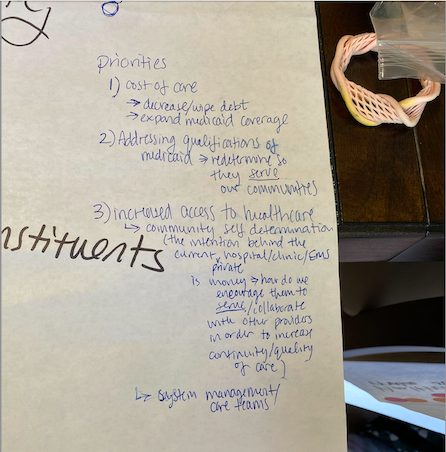 priorities
1) cost of care
→ decrease/wipe debt
→ expand medicaid coverage
2) Addressing qualifications of
medicaid → redetermine so
they serve
our communities
3) increased access to healthcare
↳ community self determination
(the intention behind the
current private hospital/clinic/EMS
is money → how do we
encourage them to
serve/collaborate
with other providers
in order to increase
continuity/quality
of care)
↳ system management/
care teams
nstituents